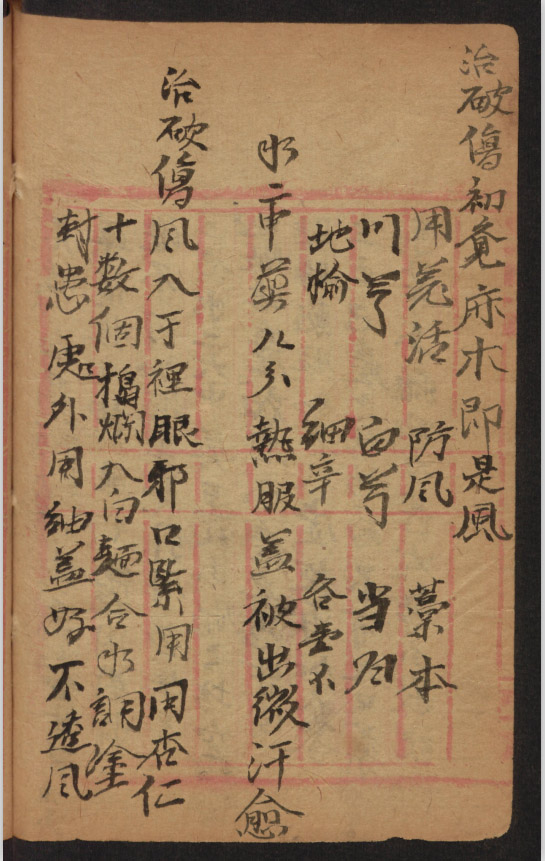 治破傷初竟麻木即是風
用羌活 防风 藁本
川芎 白芍 当归
地榆 细辛 各壹不
水二中煎八分熱服盖被出微汗愈
治破傷风入于裡眼邪口緊用用杏仁
十数個搗爛入白麵合水調塗
封患處外用紬盖好不透风